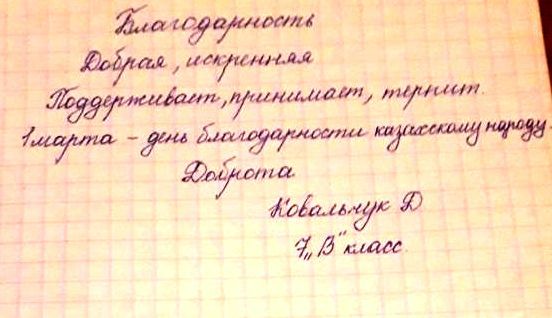 Благодарность
Добрая, искренняя
Поддерживает, принимает, терпит.
1 марта – день благодарности казахскому народу.
Доброта
Ковальчук Д
7 „В" класс.